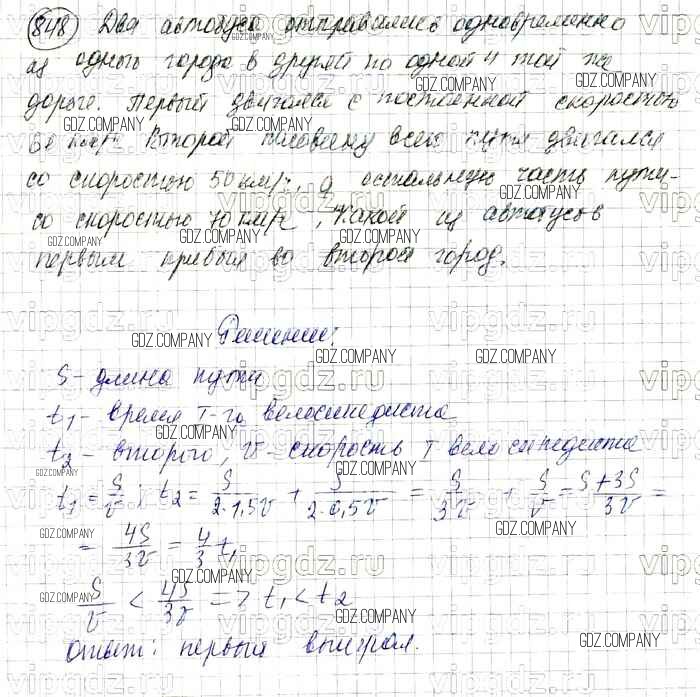 848) Два автобуса отправились одновременно
из одного города в другой по одной и той же
дороге. Первый двигался с постоянной скоростью
км/ч. Второй половину всего пути двигался
со скоростью 50 км/ч, а остальную часть пути -
со скоростью 70 км/ч. Какой из автобусов
первым прибыл во второй город.
Решение:
S - длина пути
t₁ - время I-го велосипедиста
t₂ - второго, v - скорость I велосипедиста
t₁ = S/v ; t₂ = S/2·1,5v + S/2·0,5v = S/3v + S/v = S+3S/3v =
= 4S/3v = 4/3 t₁
S/v < 4S/3v => t₁ < t₂
ответ: первый выиграл.
GDZ.COMPANY
vipgdz.ru